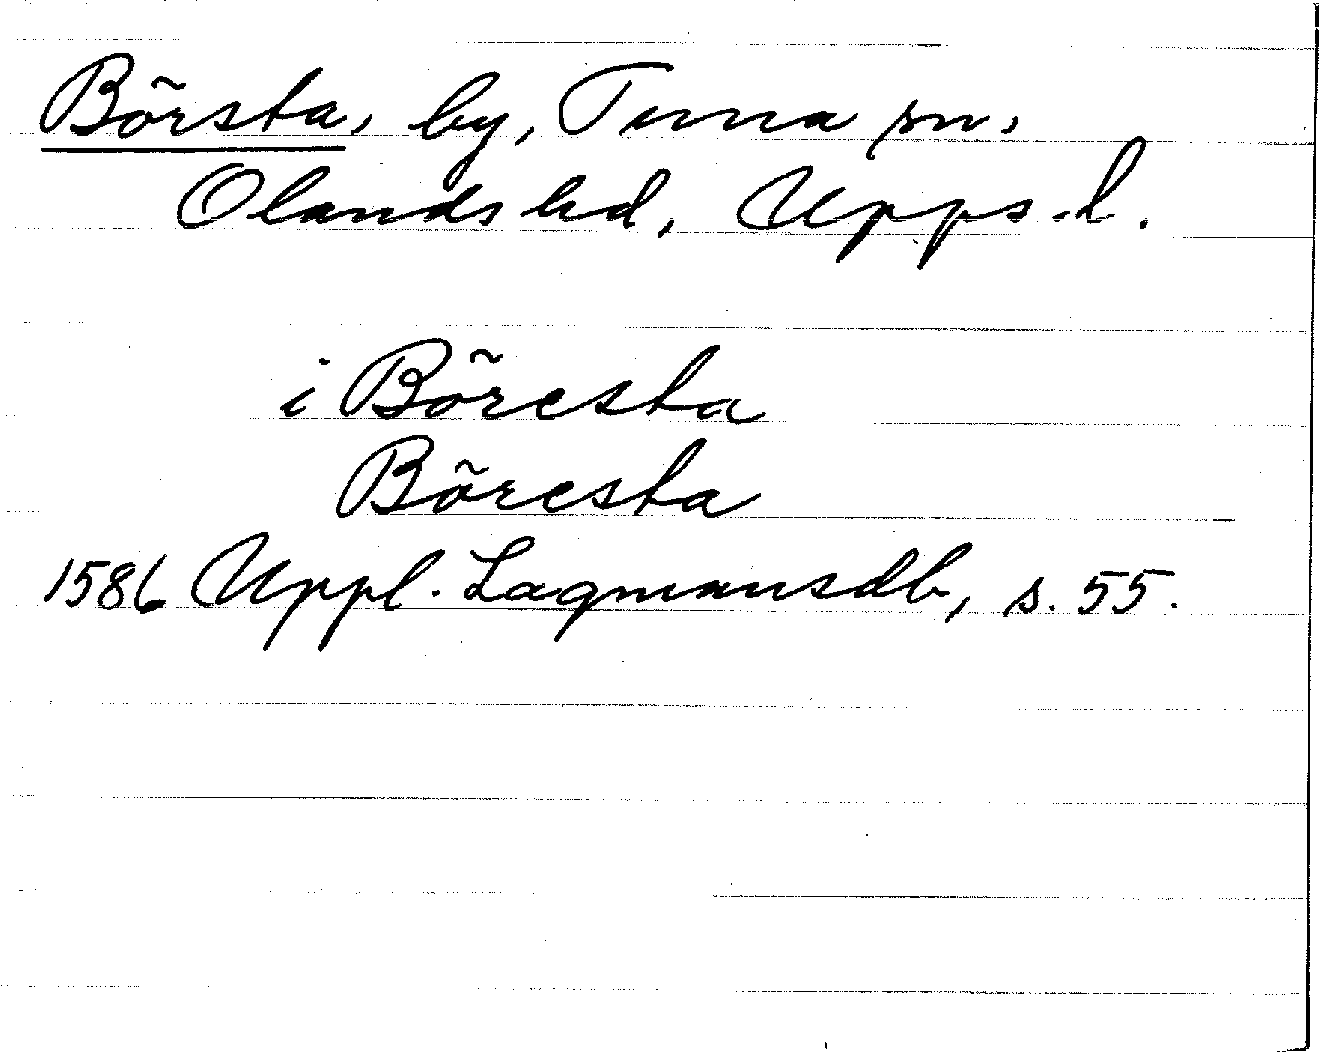 Börsta, by, Tuna sn,
Olands hd, Upps.l.
i Böresta
Böresta
1586 Uppl. Lagmansdb, s. 55.